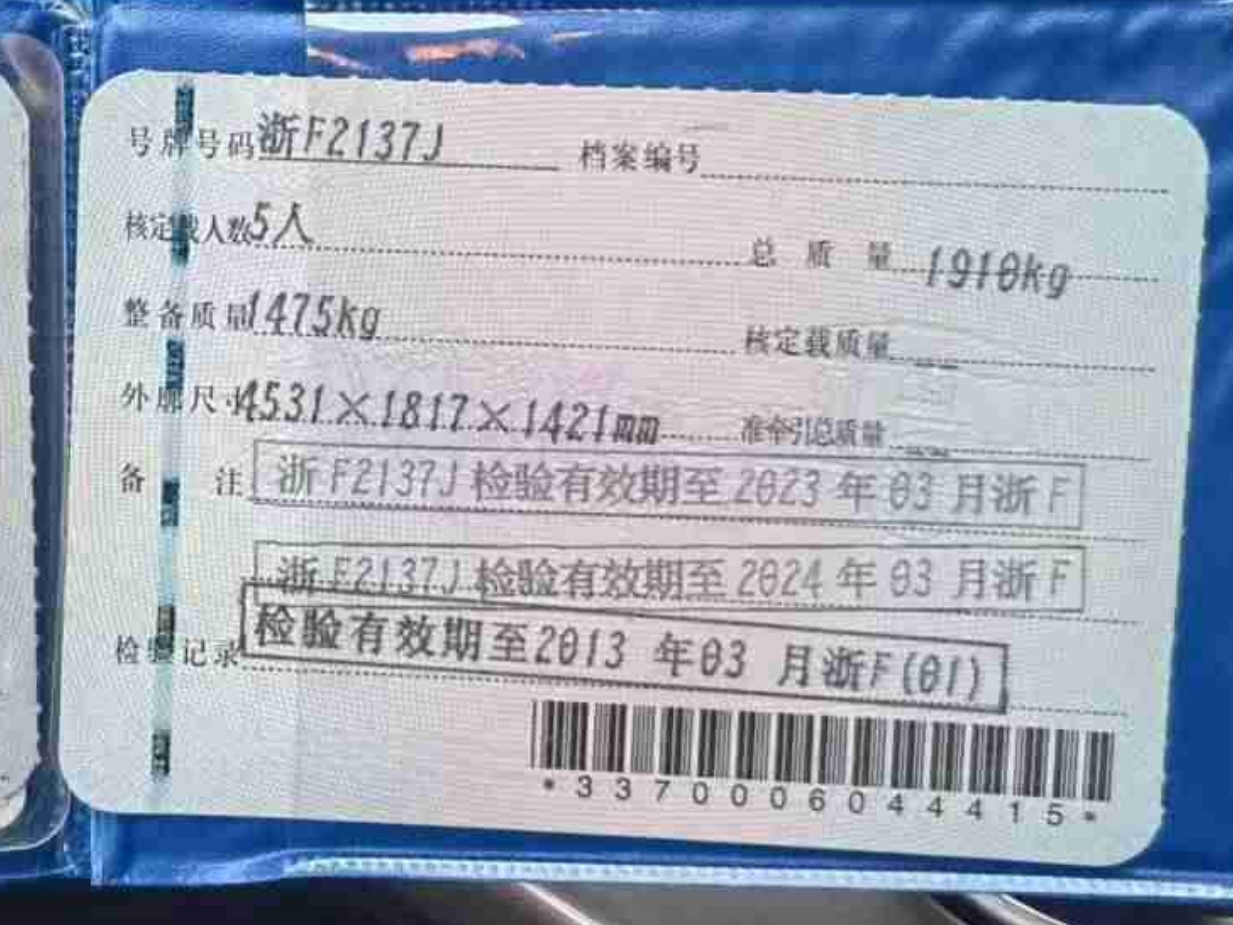 号牌号码 浙F2137J 档案编号
核定载人数 5人 总质量 1910kg
整备质量 1475kg 核定载质量 --
外廓尺寸 4531×1817×1421mm 准牵引总质量 --
备注 浙F2137J检验有效期至2023年03月浙F
浙F2137J检验有效期至2024年03月浙F
检验记录 检验有效期至2013年03月浙F(01)
*3370006044415*